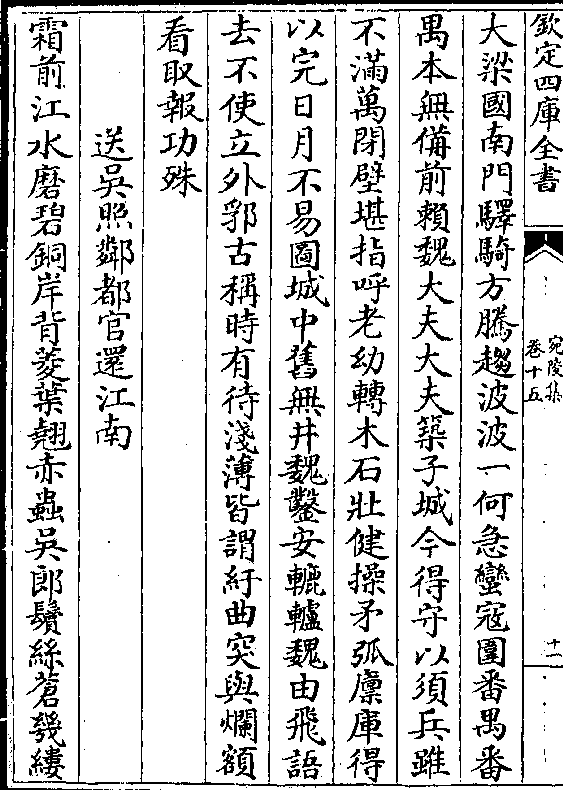 欽定四庫全書
宛陵集
卷十五
十一
大梁國南門驛騎方騰趨波波一何急蠻寇圍番禺番
禺本無備前賴魏大夫大夫築子城今得守以須兵雖
不滿萬閉壁堪指呼老幼轉木石壯健操矛弧廩庫得
以完日月不易圖城中舊無井魏鑿安轆轤魏由飛語
去不使立外郛古稱時有待淺薄皆謂紆曲突與爛額
看取報功殊
送吳照鄰都官還江南
霜前江水磨碧銅岸背菱葉翹赤蟲吳郎鬢絲蒼幾縷